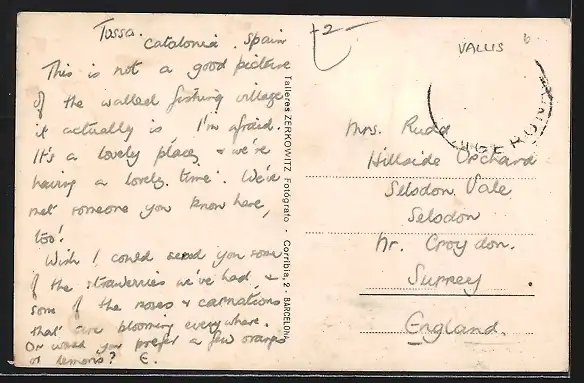 Tossa.
Catalonia. Spain
This is not a good picture
of the walled fishing village
it actually is, I'm afraid.
It's a lovely place, & we're
having a lovely time! We've
met someone you know here,
too!
Wish I could send you some
of the strawberries we've had, &
some of the roses & carnations
that are blooming everywhere.
Or would you prefer a few oranges
or lemons? E.
Talleres ZERKOWITZ Fotógrafo - Corribia, 2 - BARCELONA
-2-
VALLIS
GERONA
Mrs. Rudd
Hillside Orchard
Selsdon Vale
Selsdon
Nr. Croydon.
Surrey
England.